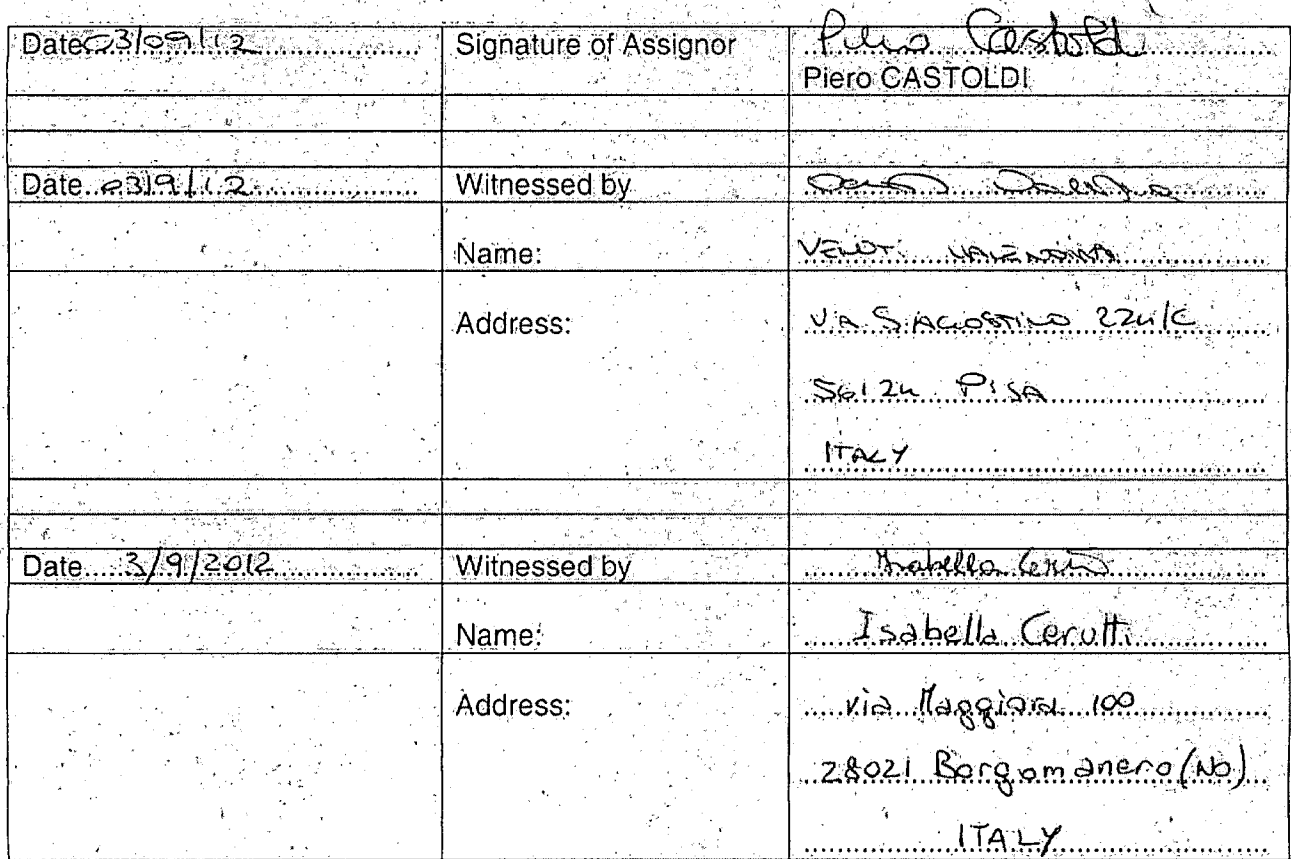 Date 03/09/12 Signature of Assignor Piero Castoldi
Piero CASTOLDI
Date 03/9/12 Witnessed by
Name:
Address: VIA S AGOSTINO 224/C
56124 PISA
ITALY
Date 3/9/2012 Witnessed by Isabella Cerutti
Name: Isabella Cerutti
Address: via Maggiora 100
28021 Borgomanero (NO)
ITALY